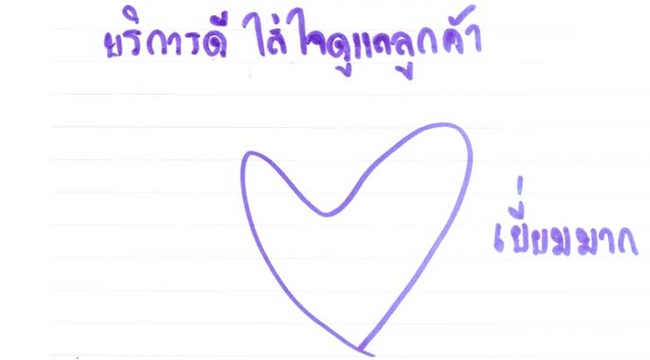 บริการดี ใส่ใจดูแลลูกค้า
เยี่ยมมาก